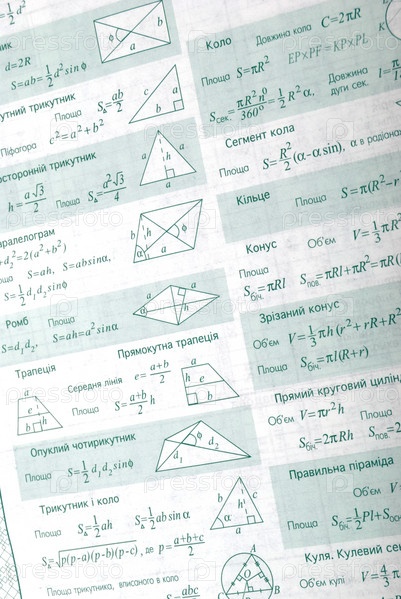 d=2R
S=ab=½d²sinφ
утний трикутник
Площа S△=ab/2
Піфагора c²=a²+b²
осторонній трикутник
h=a√3/2 Площа S△=a²√3/4
аралелограм
+d₂²=2(a²+b²)
S=ah, S=absinα,
S=½d₁d₂sinφ
Ромб Площа
S=d₁d₂, S=ah=a²sinα
Трапеція Прямокутна трапеція
Середня лінія e=a+b/2
Площа S=a+b/2 h
Опуклий чотирикутник
Площа S=½d₁d₂sinφ
Трикутник і коло
Площа S△=½ah S△=½absinα
S△=√p(p-a)(p-b)(p-c), де p=a+b+c/2
Площа трикутника, вписаного в коло
S=abc
Коло Довжина кола C=2πR
Площа S=πR² EP×PF=KP×PL
Sсек.=πR²n°/360°=½R²α, Довжина дуги сек.
Сегмент кола
Площа S=R²/2(α-sinα), α в радіана
Кільце Площа S=π(R²-r
Конус Об'єм V=⅓πR²
Площа Sбіч.=πRl Sпов.=πRl+πR²=πR(
Зрізаний конус
Об'єм V=⅓πh(r²+rR+R²
Площа Sбіч.=πl(R+r)
Прямий круговий цилін
Об'єм V=πr²h Площа
Sбіч.=2πRh Sпов.=2
Правильна піраміда
Об'єм V=
Площа Sбіч.=½Pl+Sос
Куля. Кульовий се
Об'єм кулі V=4/3π